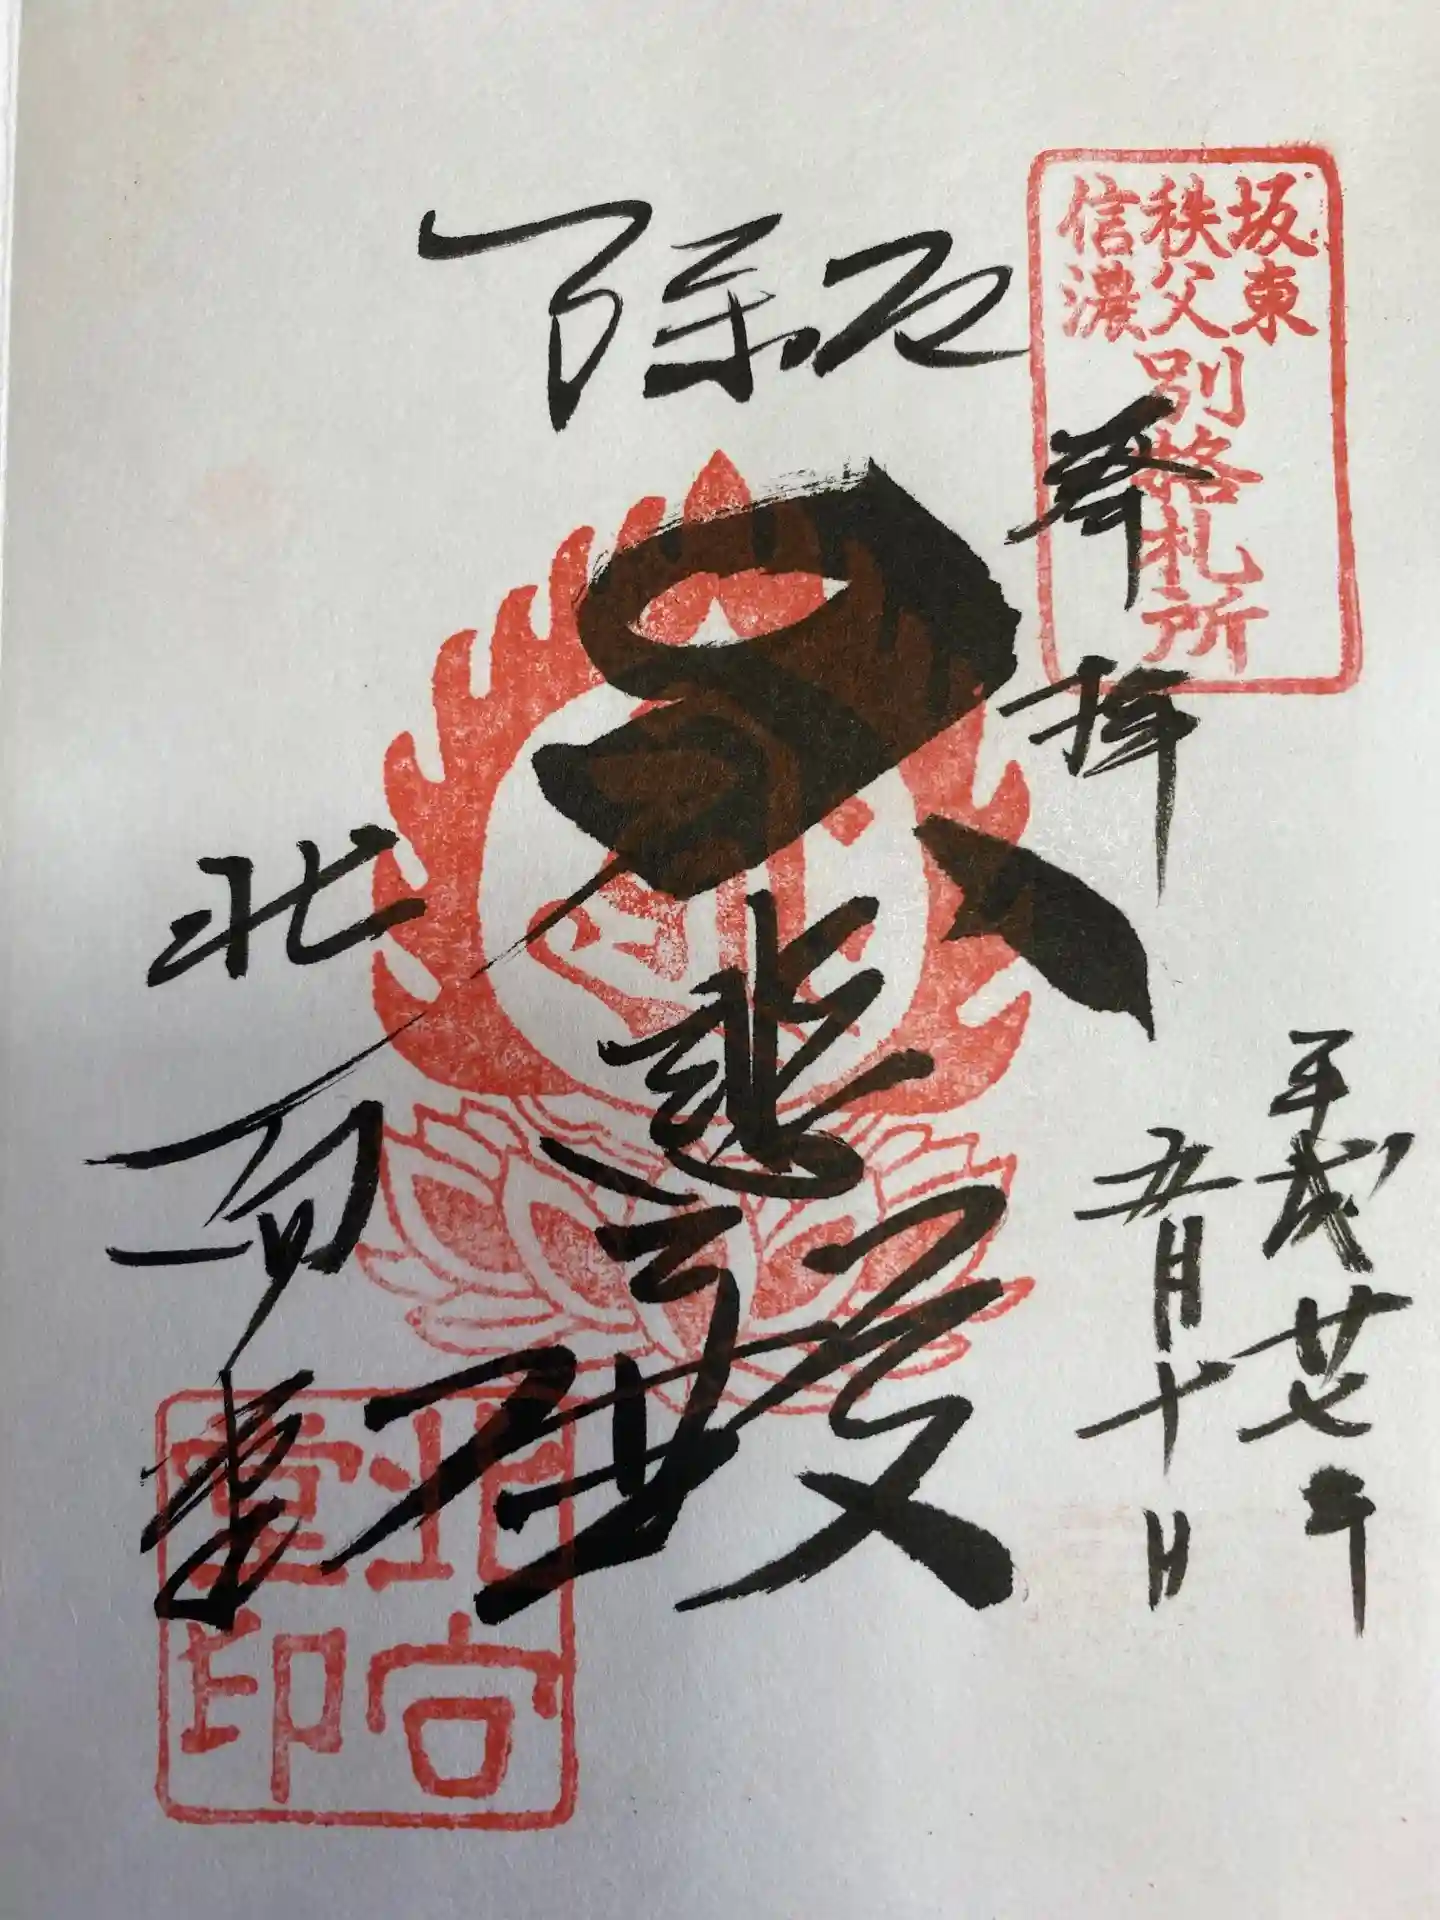 坂東
秩父
信濃
別格札所
奉拝
平成廿七年
五月十日
厄除
大悲殿
北向堂
北向
堂印